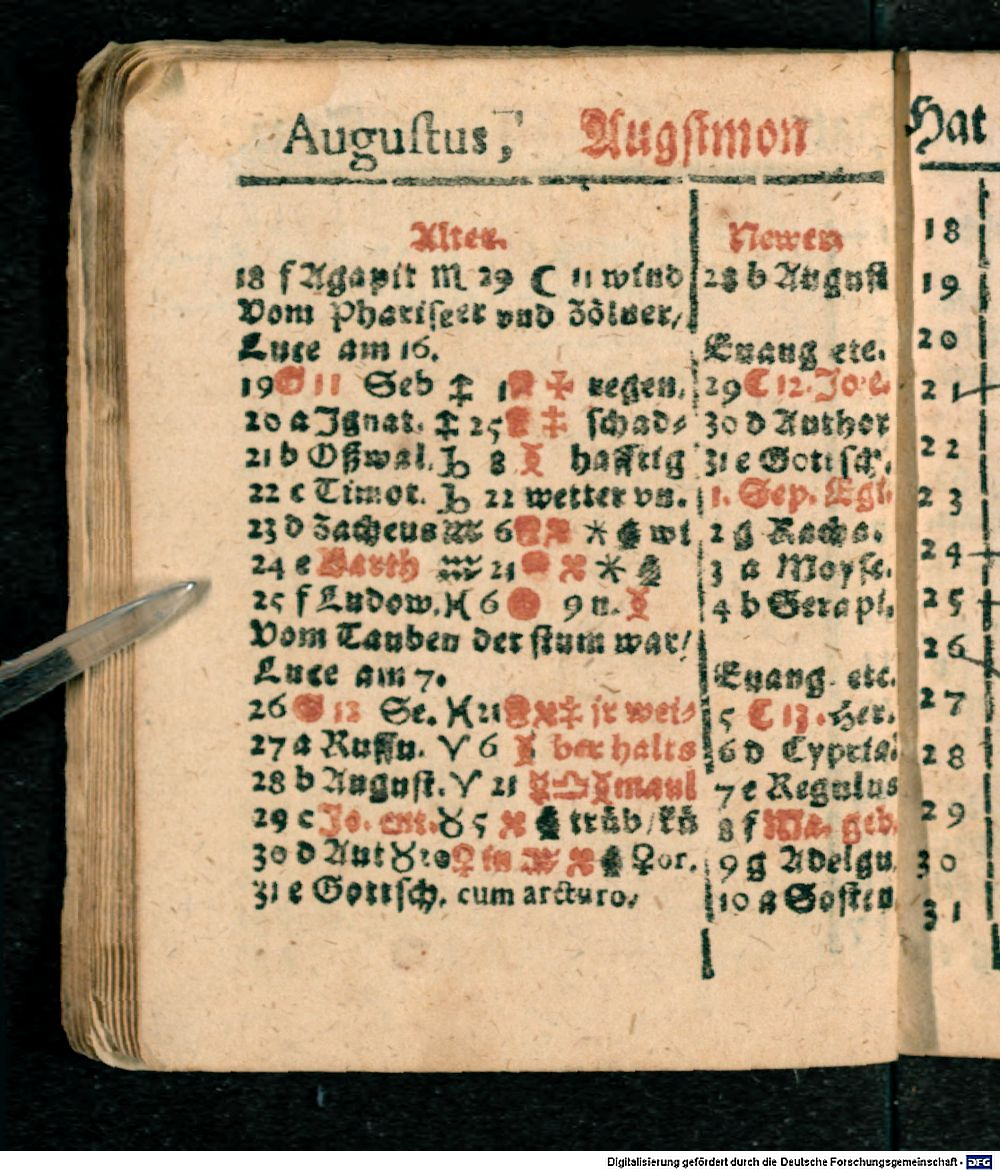 Auguſtus, Augſtmon
Alter.
18 f Agapit ♏ 29 ☾ 11 wind
Vom Phariſeer vnd Zölner/
Luce am 16.
19 11 Seb ♐ regen,
20 a Ignat. ♐ 25 ſchad⸗
21 b Oßwal. ♑ 8 hafftig
22 c Timot. ♑ 22 wetter vn.
23 d Zacheus ♒ 6 wi
24 e Barth ♒ 21
25 f Ludow. ♓ 6 9 u.
Vom Tauben der ſtum war/
Luce am 7.
26 12 Se. ♓ 21 jr wei⸗
27 a Ruffu. ♈ 6 ber halts
28 b Auguſt. ♈ 21 maul
29 c Jo. ent. ♉ 5 trüb/kü
30 d Aut ♉ ♀ in ♀or.
31 e Gottſch. cum arcturo.
Newer.
28 b Auguſt
Euang etc.
29 C 12. Jo.e.
30 d Author
31 e Gottſch.
1. Sep. Egi.
2 g Racha.
3 a Moyſe.
4 b Serapi.
Euang. etc.
5 C 13. Her.
6 d Cypria
7 e Regulus
8 f Ma. geb.
9 g Adelgu
10 a Soſten
Hat
18
19
20
21
22
23
24
25
26
27
28
29
30
31
Digitalisierung gefördert durch die Deutsche Forschungsgemeinschaft - DFG